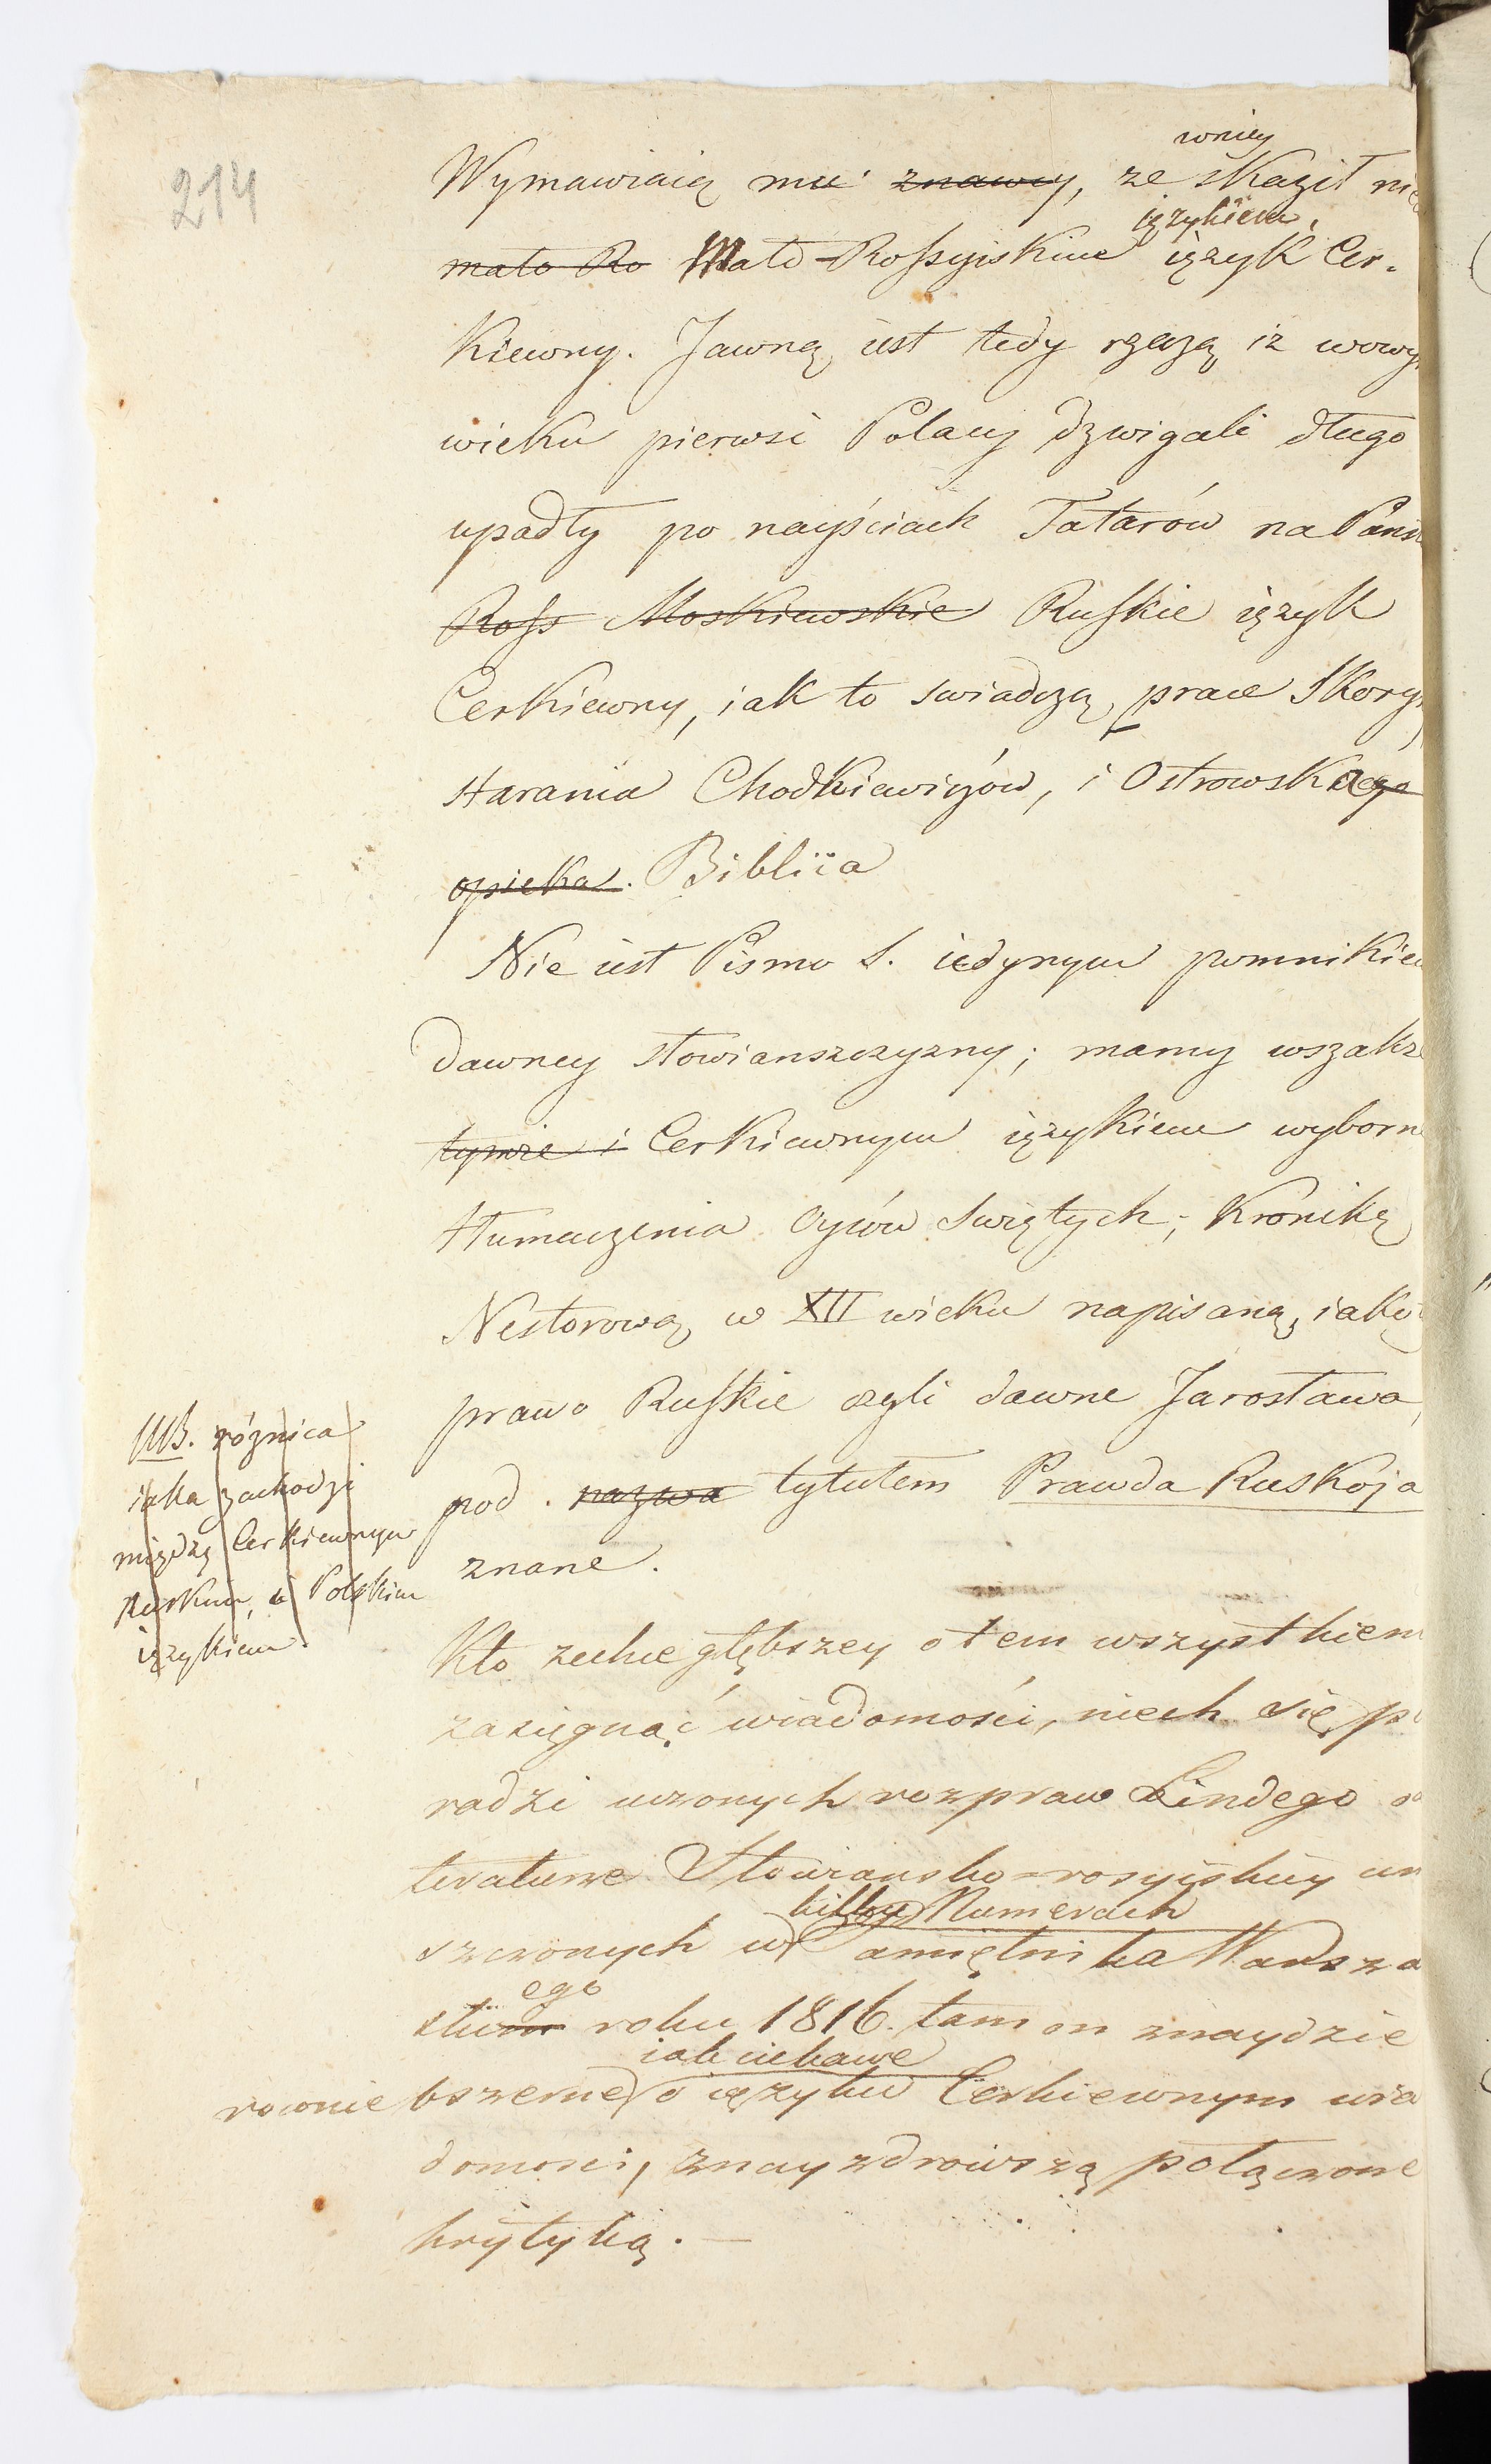 214
wniey
Wymawiaią mu znawcy, ze skaził nie
ięzykiem
mało Ro Mało-Rossyiskim ięzyk Cer-
kiewny. Jawną iest tedy rzeczą iz wowy
wieku pierwsi Polacy dzwigali długo
upadły po nayściach Tatarów na Pańs
Ross Moskiewskie Ruskie ięzyk
Cerkiewny, iak to swiadczą prace Skory
starania Chodkiewiczów, i Ostrowska
opieka. Bibliia
Nie iest Pismo S. iedynym pomnikiem
dawney słowianszczyzny; mamy wszakze
tymze i Cerkiewnym ięzykiem wyborne
tłumaczenia Oyców Swiętych; Kronikę
Nestorową w XII wieku napisaną, iako
prawo Ruskie czyli dawne Jarosława,
pod. nazwa tytułem Prawda Ruskoja
znane.
NB. róznica
iaka zachodzi
między Cerkiewnym
Ruskim, a Polskim
ięzykiem.
Kto zechce głębszey o tem wszystkiem
zasięgnąć wiadomości, niech się po
radzi uczonych rozpraw Lindego o
teraturze Słowiansko-rosyiskiey um
kilku Numerach
szczonych w Pamiętnika Warsza
ego
skiem roku 1816. tam on znaydzie
iak ciekawe
rownie bszerne o ięzyku Cerkiewnym wia
domosci, znayzdrowszą połączone
krytyką. —